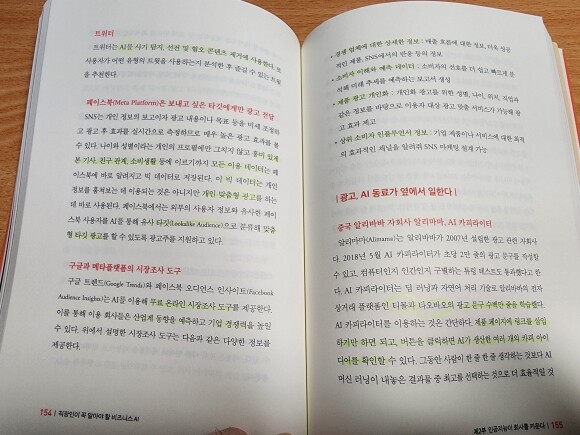 트위터
트위터는 AI를 사기 탐지, 선전 및 혐오 콘텐츠 제거에 사용한다. 또
사용자가 어떤 유형의 트윗을 사용하는지 분석한 후 즐길 수 있는 트윗
을 추천한다.
페이스북(Meta Platform)은 보내고 싶은 타깃에게만 광고 전달
SNS는 개인 정보의 보고이자 광고 내용이나 목표 등을 미세 조정하
고 광고 후 효과를 실시간으로 측정하므로 매우 높은 광고 효과를 보
수 있다. 나이와 성별이라는 개인의 프로필에만 그치지 않고 흥미 있게
본 기사, 친구 관계, 소비생활 등에 이르기까지 모든 이용 데이터는 페
이스북에 바로 알려지고 빅 데이터로 저장된다. 이 빅 데이터는 개인
정보를 훔쳐보는 데 이용되는 것은 아니지만 개인 맞춤형 광고를 하는
데 바로 사용된다. 페이스북에서는 외부의 사용자 정보와 유사한 페이
스북 사용자를 AI를 통해 유사 타깃(Lookalike Audience)으로 분류해 맞춤
형 타깃 광고를 할 수 있도록 광고주를 지원하고 있다.
구글과 메타플랫폼의 시장조사 도구
구글 트렌드(Google Trends)와 페이스북 오디언스 인사이트(Facebook
Audience Insights)는 AI를 이용해 무료 온라인 시장조사 도구를 제공한다.
이를 통해 이용 회사들은 산업계 동향을 예측하고 기업 경쟁력을 높일
수 있다. 위에서 설명한 시장조사 도구는 다음과 같은 다양한 정보를
제공한다.
154 | 직장인이 꼭 알아야 할 비즈니스 AI
• 경쟁 업체에 대한 상세한 정보 : 매출 흐름에 대한 정보, 더욱 성공
적인 제품, SNS에서의 반응 등의 정보
• 소비자 이해와 예측 데이터 : 소비자의 선호를 더 쉽고 빠르게 분
석해 미래 추세를 예측하는 보고서 생성
• 제품 광고 개인화 : 개인화 광고를 위한 성별, 나이, 위치, 직업과
같은 정보를 바탕으로 이용자 대상 광고 맞춤 서비스가 가능해 광
고 효과 제고
• 상위 소비자 인플루언서 정보 : 기업 제품이나 서비스에 대한 최적
의 효과적인 채널을 알려줘 SNS 마케팅 실재 가능
| 광고, AI 동료가 옆에서 일한다 |
중국 알리바바 자회사 알리마마, AI 카피라이터
알리마마(Alimama)는 알리바바가 2007년 설립한 광고 관련 자회사
다. 2018년 5월 AI 카피라이터가 초당 2만 줄의 광고 문구를 작성할
수 있고, 컴퓨터인지 인간인지 구별하는 튜링 테스트도 통과했다고 한
다. AI 카피라이터는 딥 러닝과 자연어 처리 기술로 알리바바의 전자
상거래 플랫폼인 티몰과 타오바오의 광고 문구 수백만 줄을 학습했다.
AI 카피라이터를 이용하는 것은 간단하다. 제품 페이지에 링크를 삽입
하기만 하면 되고, 버튼을 클릭하면 AI가 생산한 여러 개의 카피 아이
디어를 확인할 수 있다. 그동안 사람이 한 줄 한 줄 생각하는 것보다 AI
머신 러닝이 내놓은 결과물 중 최고를 선택하는 것으로 더 효율적일 것
제3부 인공지능이 회사를 키운다 | 155